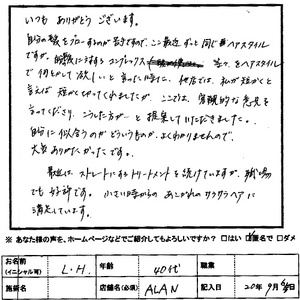 いつも ありがとう ございます。
自分の髪をブローするのが苦手ですので、ここ最近 ずっと同じヘアスタイル
ですが、
で何とかして欲しいと言った時に、他店では、私が短かくと
言えば 短かくやってくれましたが、ここでは、客観的な意見を
言ってくださり、こうした方が‥と 提案していただきました。
自分に似合うのがどういうものか、よくわかりませんので、
大変ありがたかったです。
最近は、ストレートにするトリートメントを続けていますが、職場
でも好評です。小さい時からの あこがれのサラサラヘアに
満足しています。
※ あなた様の声を、ホームページなどでご紹介してもよろしいですか？ □はい ☑匿名で □ダメ
お名前 (イニシャル可) L・H. 年齢 40代 職業
施術 店舗名(必須) ALAN 記入日 20年 9月